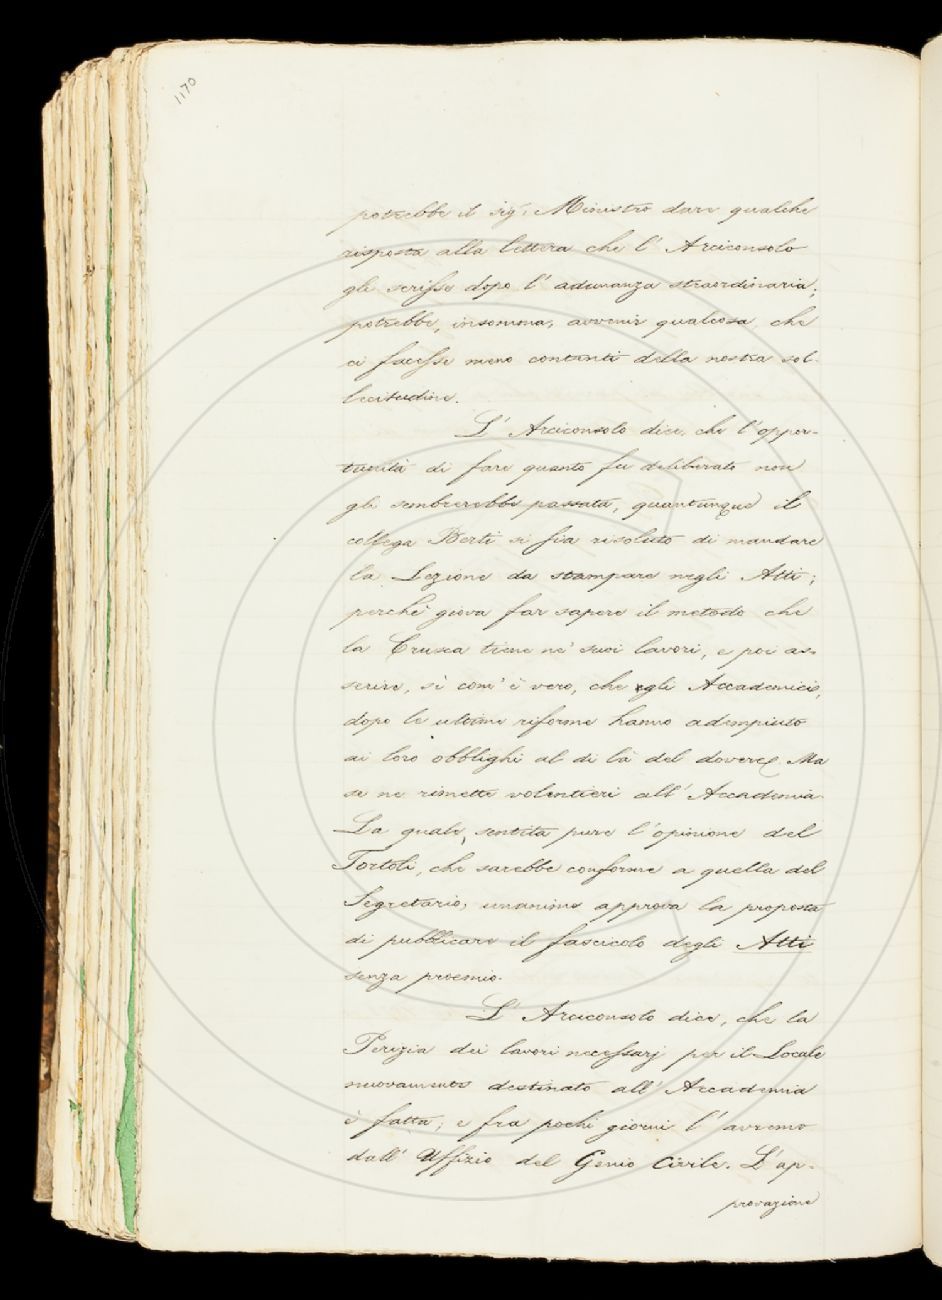 1170
potrebbe il sig. Ministro dare qualche
risposta alla lettera che l' Arciconsolo
gli scrisse dopo l' adunanza straordinaria;
potrebbe, insomma, avvenir qualcosa, che
ci facesse meno contenti della nostra sol-
lecitudine.
L' Arciconsolo dice, che l'oppor-
tunità di fare quanto fu deliberato non
gli sembrerebbe passata, quantunque il
collega Berti si sia risoluto di mandare
la Lezione da stampare negli Atti;
perchè giova far sapere il metodo che
la Crusca tiene ne' suoi lavori, e poi as-
serire, sì com' è vero, che gli Accademici,
dopo le ultime riforme hanno adempiuto
ai loro obblighi al di là del dovere. Ma
se ne rimette volentieri all' Accademia.
La quale, sentita pure l'opinione del
Tortoli, che sarebbe conforme a quella del
Segretario, unanime approva la proposta
di pubblicare il fascicolo degli Atti
senza proemio.
L' Arciconsolo dice, che la
Perizia dei lavori necessarj per il Locale
nuovamente destinato all' Accademia
è fatta; e fra pochi giorni l' avremo
dall' Uffizio del Genio Civile. L'ap-
provazione